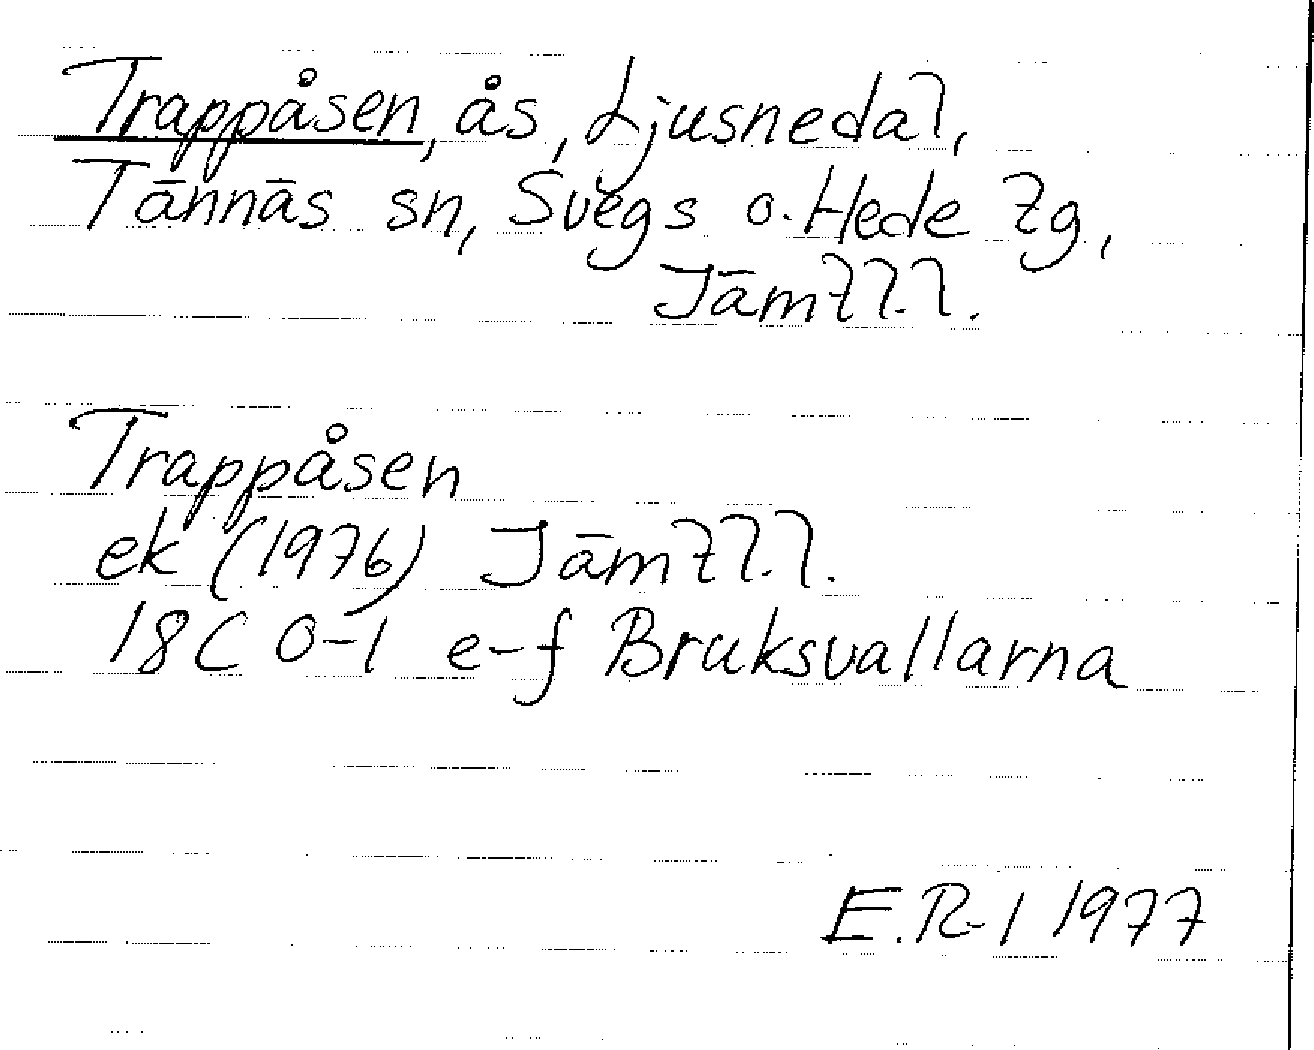 Trappåsen, ås, Ljusnedal,
Tännäs sn, Svegs o. Hede tg,
Jämtl. l.
Trappåsen
ek (1976) Jämtl. l.
18C 0-1 e-f Bruksvallarna
E.R-l 1977